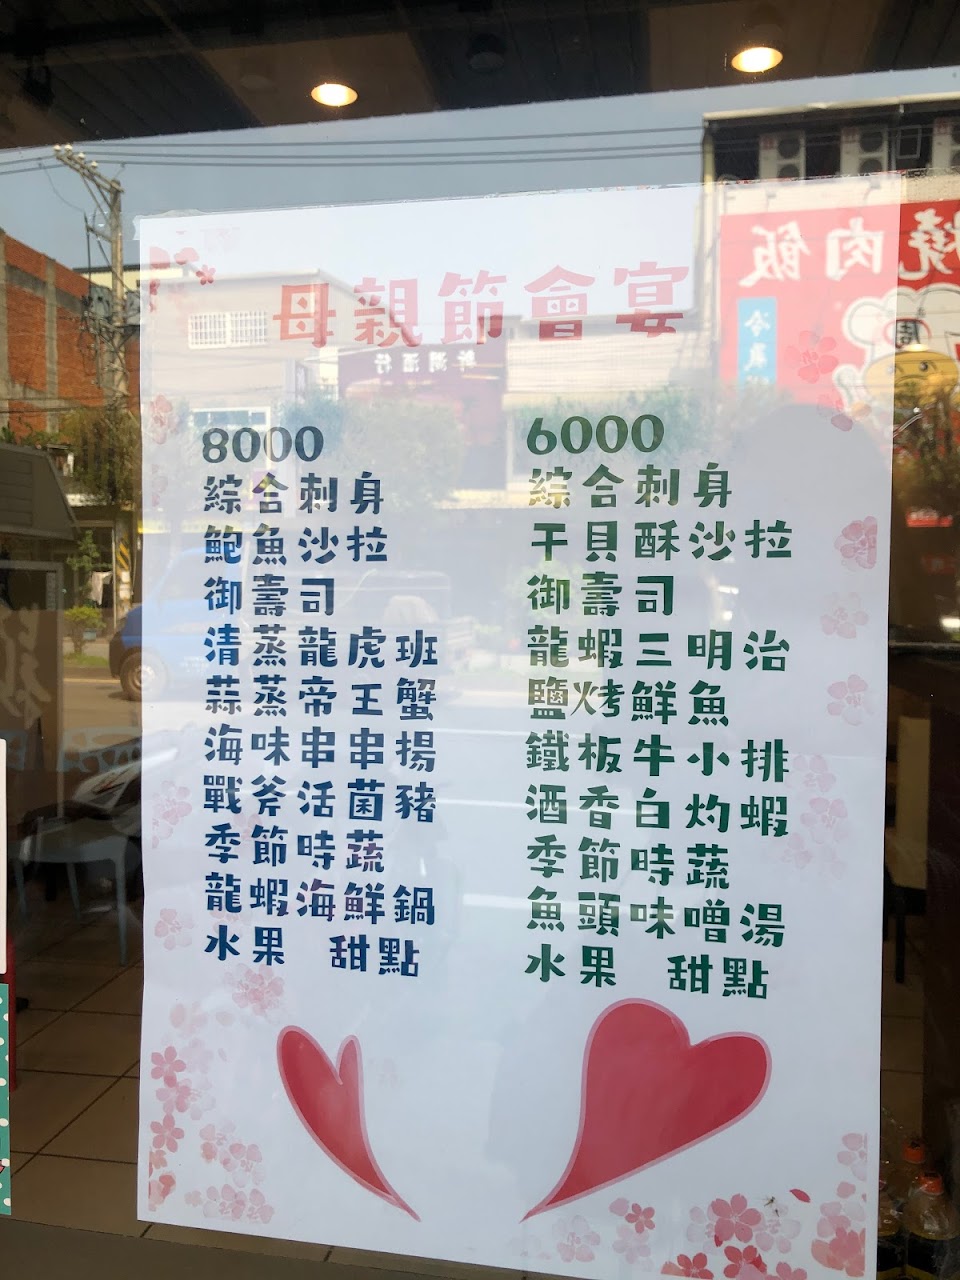 母親節會宴
8000
綜合刺身
鮑魚沙拉
御壽司
清蒸龍虎班
蒜蒸帝王蟹
海味串串揚
戰斧活菌豬
季節時蔬
龍蝦海鮮鍋
水果 甜點
6000
綜合刺身
干貝酥沙拉
御壽司
龍蝦三明治
鹽烤鮮魚
鐵板牛小排
酒香白灼蝦
季節時蔬
魚頭味噌湯
水果 甜點
燒肉飯